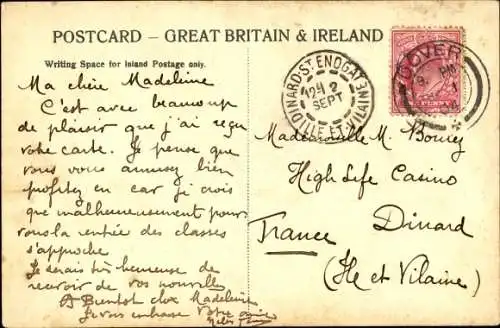 POSTCARD – GREAT BRITAIN & IRELAND
Writing Space for Inland Postage only.
Ma chère Madeleine
C'est avec beaucoup
de plaisir que j'ai reçu
votre carte. Je pense que
vous vous amusez bien
profitez en car je crois
que malheureusement pour
vous la rentrée des classes
s'approche
Je serais très heureuse de
recevoir de vos nouvelles
A Bientot chère Madeleine
Je vous embrasse Votre amie
DINARD-ST-ENOGAT
ILLE-ET-VILAINE
2
SEPT
DOVER
PM
Mademoiselle M.
High Life Casino
Dinard
France
(Ile et Vilaine)